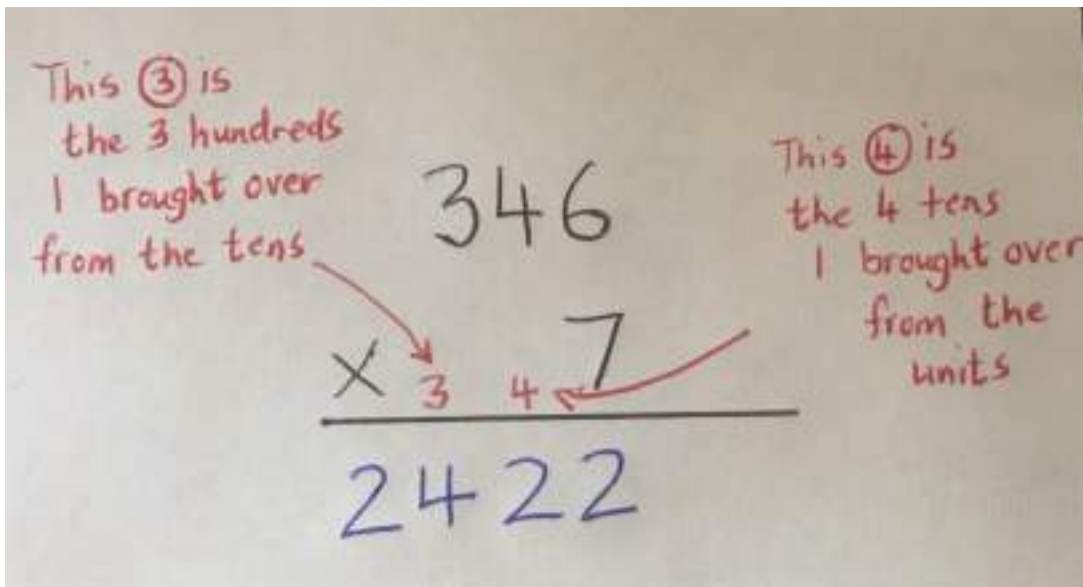 This ③ is
the 3 hundreds
I brought over
from the tens
346
× 7
3 4
2422
This ④ is
the 4 tens
I brought over
from the
units